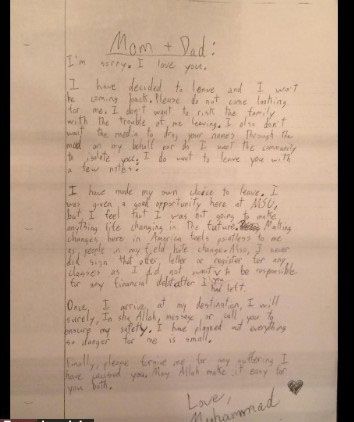 Mom + Dad:
I'm sorry. I love you.
I have decided to leave and I won't
be coming back. Please do not come looking
for me. I don't want to risk the family
with the trouble of me leaving. I also don't
want the media to drag your names through the
mud on my behalf nor do I want the community
to isolate you. I do want to leave you with
a few notes:
I have made my own choice to leave. I
was given a good opportunity here at MSU,
but I feel that I was not going to make
anything life changing in the future. Making
changes here in America feels pointless to me
as people in my field hate changes. Also, I never
did sign that offer letter or register for any
classes as I did not want to be responsible
for any financial debt after I had left.
Once I arrive at my destination, I will
surely, In sha Allah, message or call you to
ensure my safety. I have planned out everything
so danger for me is small.
Finally, please forgive me for any suffering I
have caused you. May Allah make it easy for
you both.
Love,
Muhammad